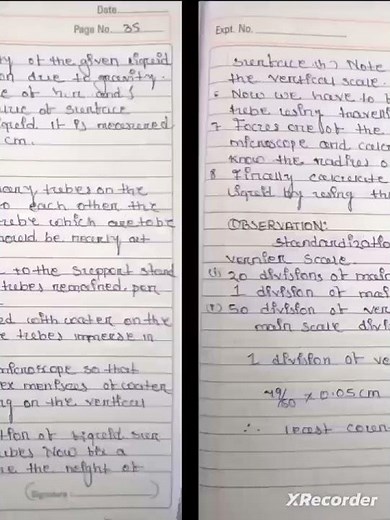 Date
Page No. 35
ty of the given liquid
on due to gravity.
e of h, r and ζ
sure of surface
liquid. It is measured
cm.
many tubes on the
to each other the
tube which are to be
should be nearly at
to the support stand
tubes remained. per
ed with water on the
tubes immerse in
microscope so that
ex meniscus of water
ng on the vertical
tion of liquid sur
tubes Now fix a
e the height of
Signature
Expt. No.
surface (h) Note
the vertical scale.
6 Now we have to
tube using
7 Focus one of the
microscope and calc
know the radius o
8 Finally calculate
liquid by using th
OBSERVATION:
standardizatio
vernier scale.
(i) 20 divisions of main
1 division of mai
50 division of ver
main scale divi
1 division of ve
49/50 x 0.05 cm
∴ least coun
XRecorder